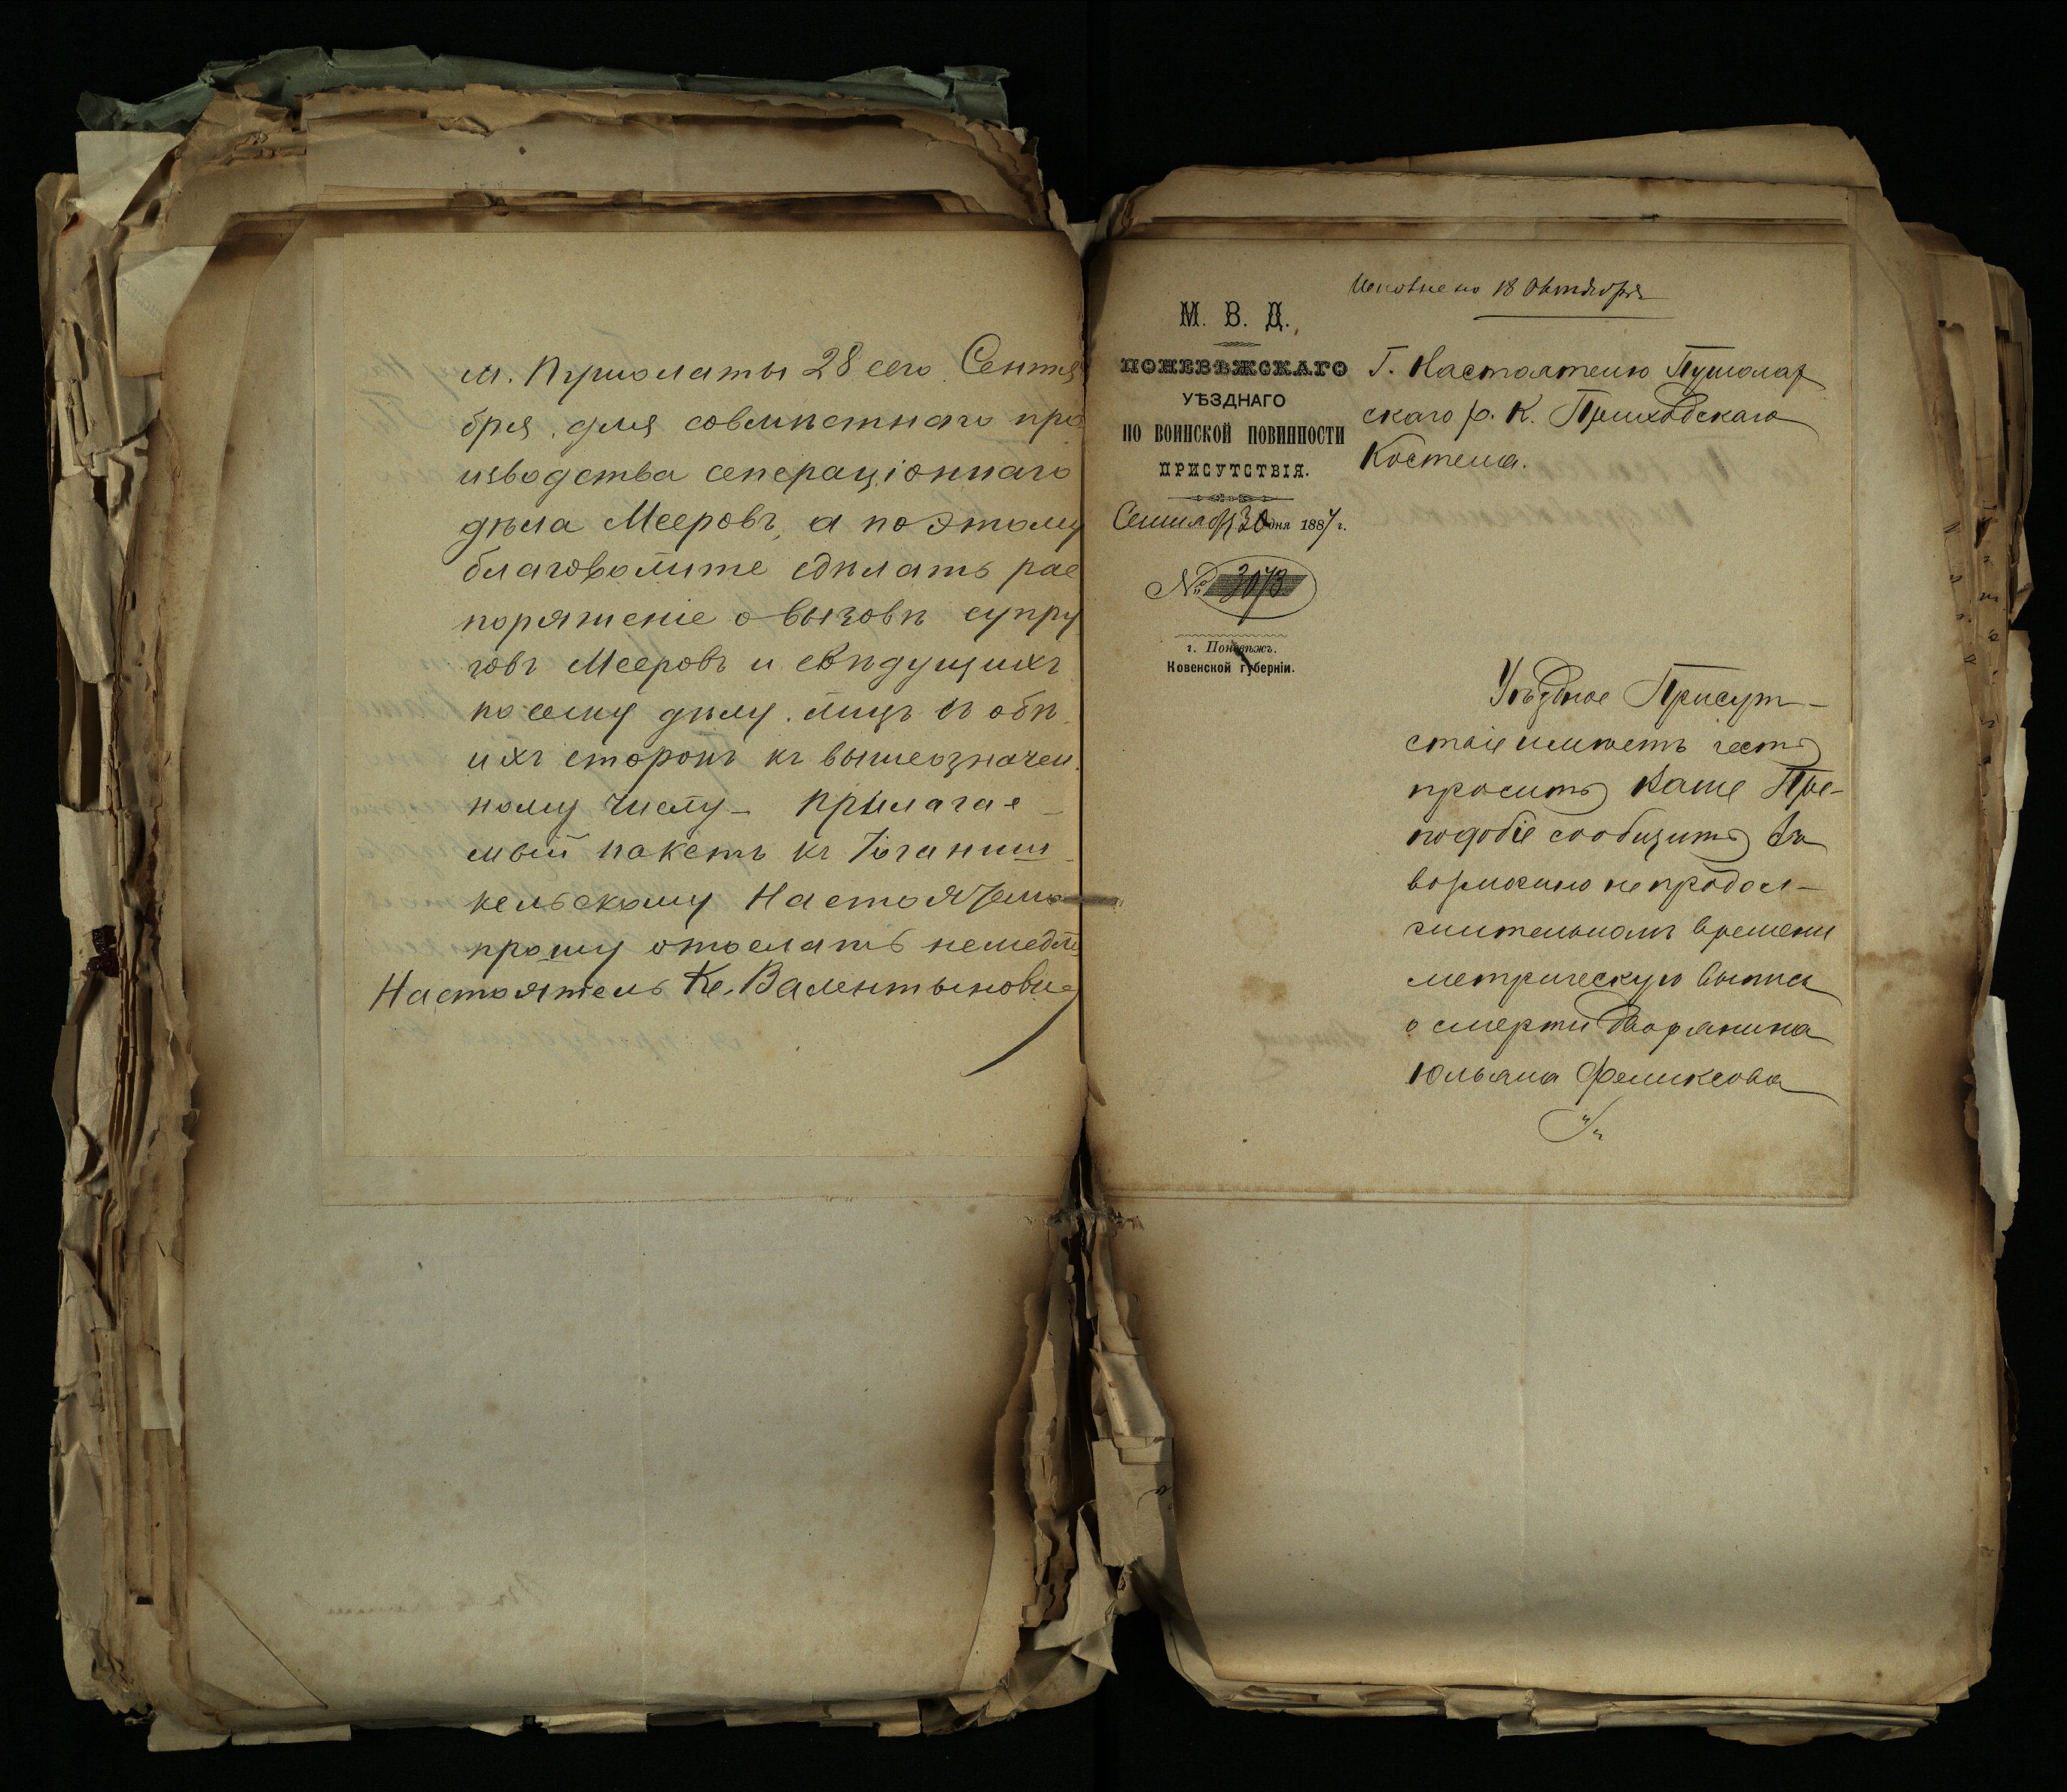 м. Пушолаты 28 сего Сентя
бря для совмѣстнаго про
изводства сепераціоннаго
дѣла Мееровъ, а поэтому
благоволите сдѣлать рас
поряженіе о вызовѣ супру
говъ Мееровъ и свѣдущихъ
по сему дѣлу лицъ съ обѣ
ихъ сторонъ къ вышеозначен
ному числу – Прилагае
мый пакетъ къ Іоганиш
кельскому Настоятелю
прошу отослать немедле
Настоятель Кс. Валентынович
Исполнено 18 Октября
М. В. Д.
ПОНЕВѢЖСКАГО
УѢЗДНАГО
ПО ВОИНСКОЙ ПОВИННОСТИ
ПРИСУТСТВІЯ.
Сентября 30 дня 1887 г.
№ 3073
г. Поневѣжъ.
Ковенской губерніи.
Г. Настоятелю Пушолат
скаго р. К. Приходскаго
Костела.
Уѣздное Присут-
ствіе имѣетъ честь
просить Ваше Пре-
подобіе сообщить въ
возможно непродол-
жительномъ времени
метрическую выпись
о смерти дворянина
Юльяна Феликсова